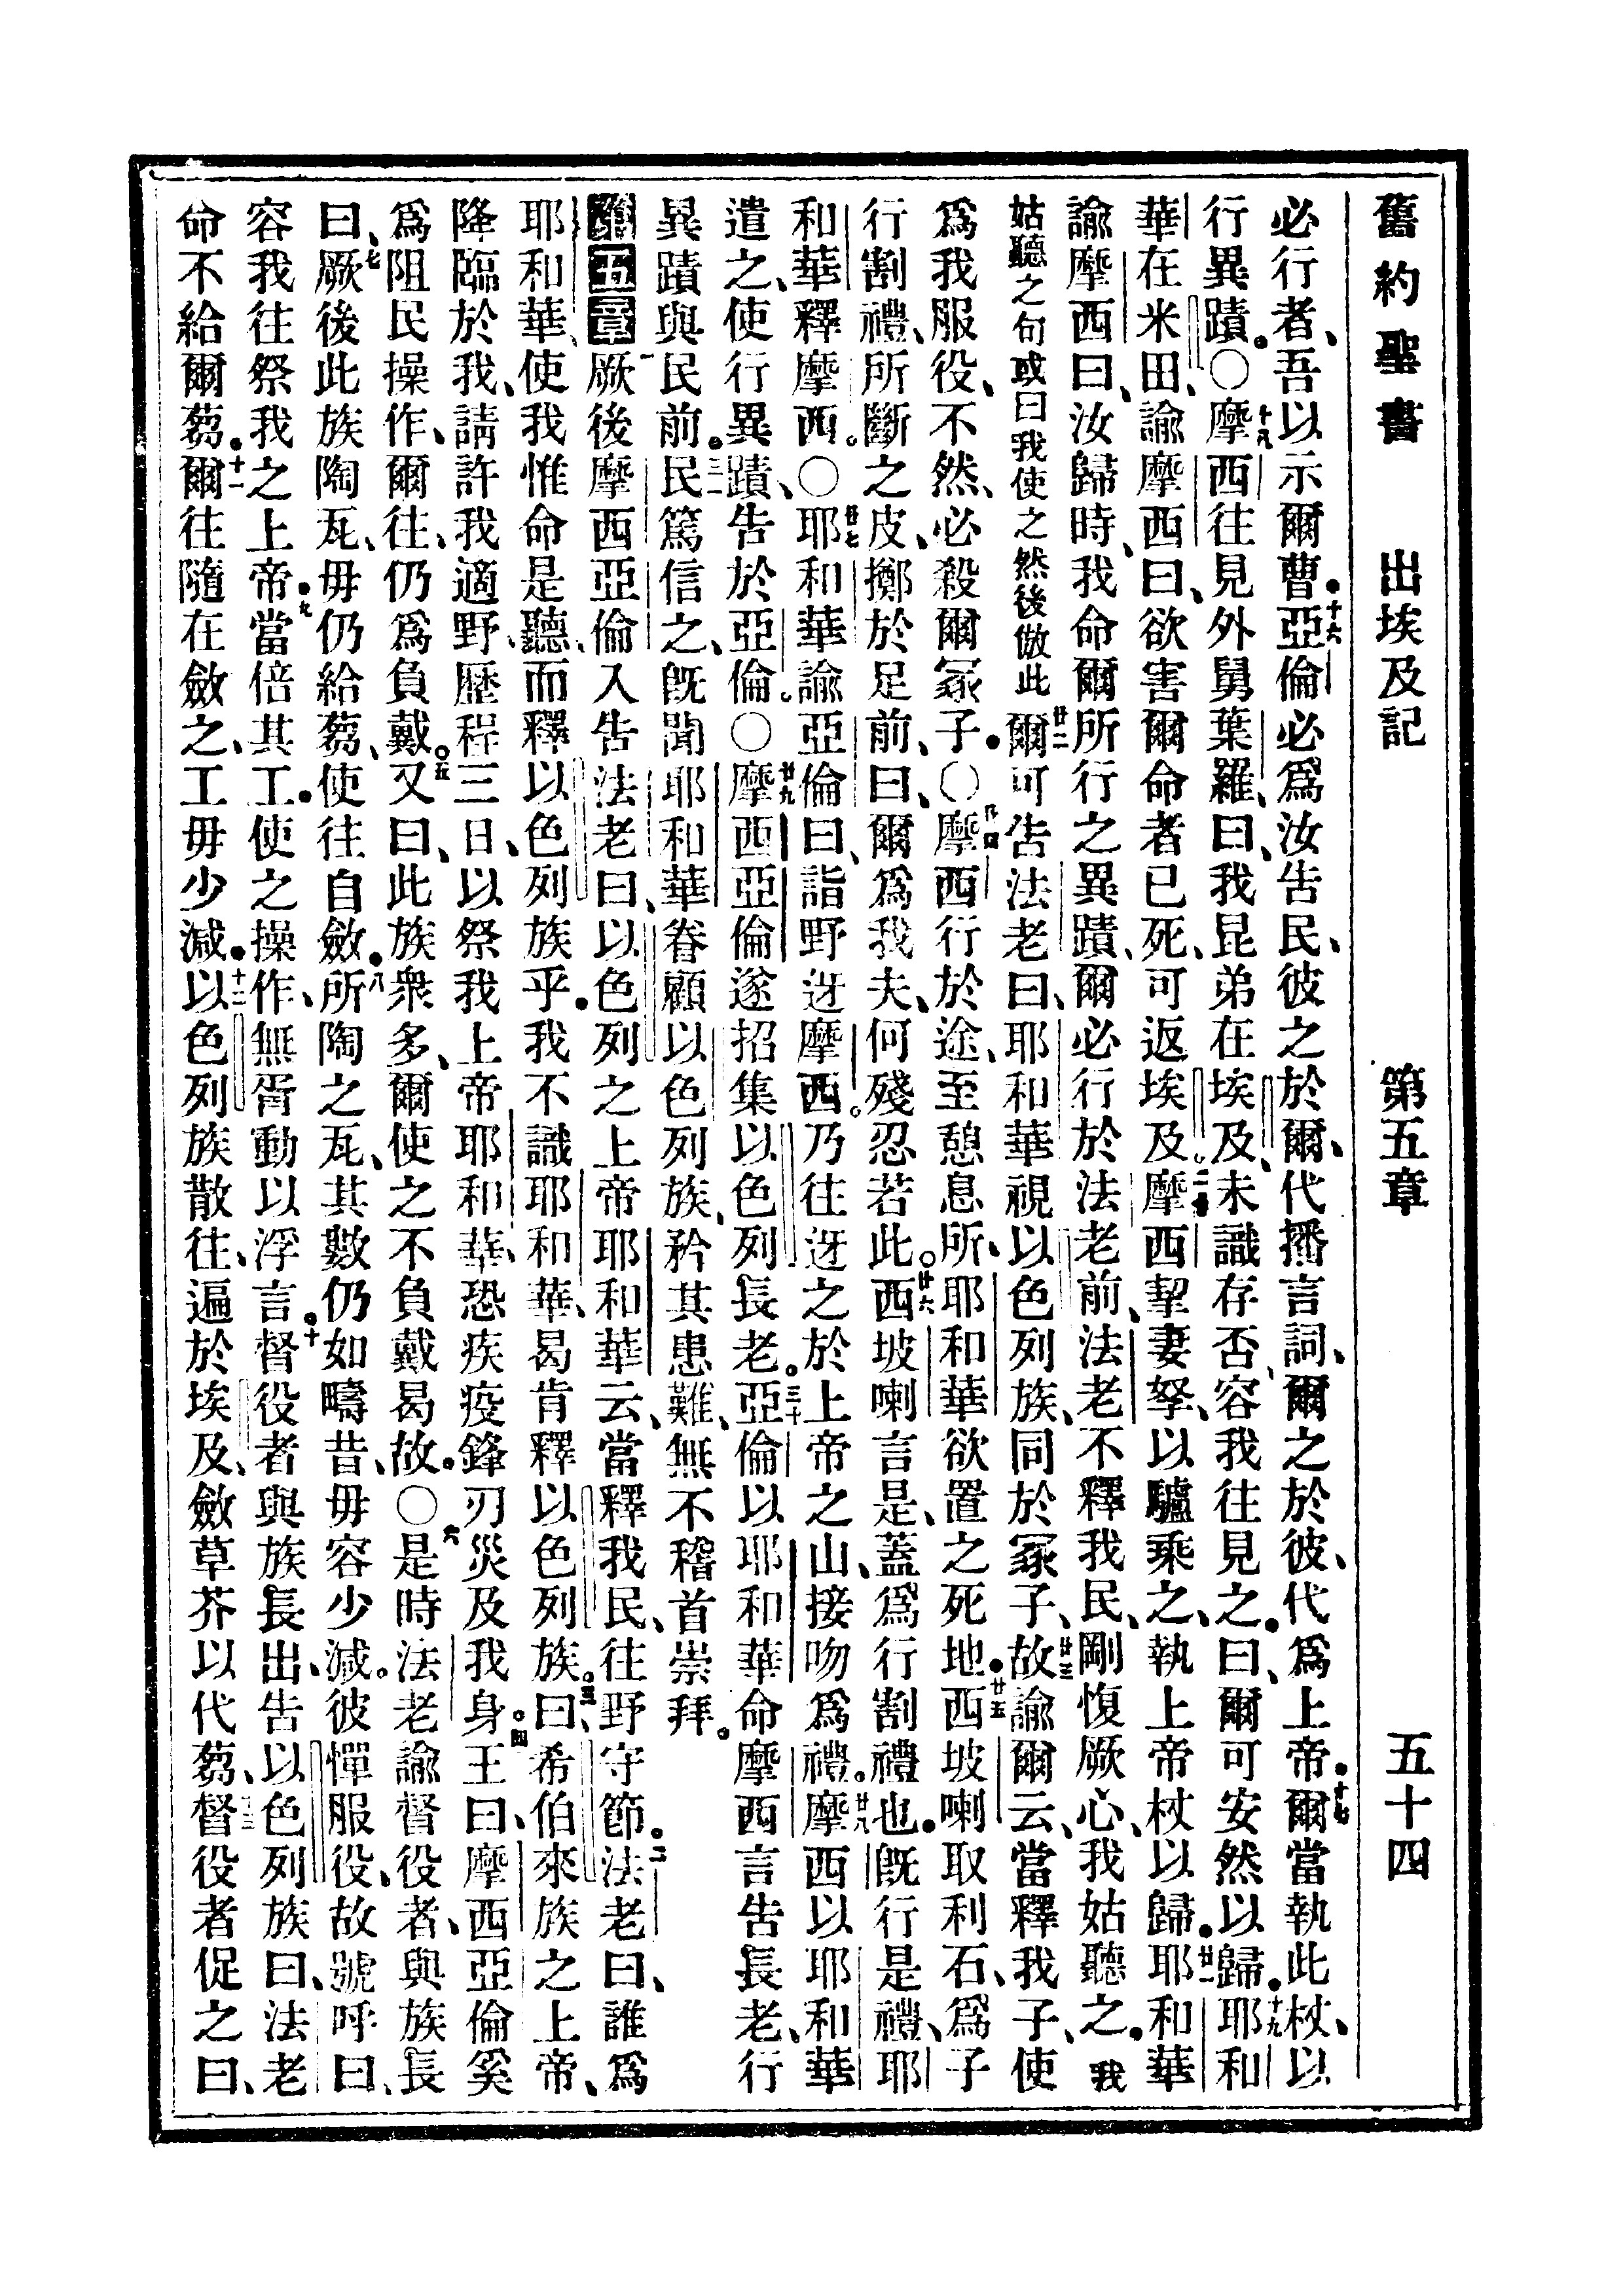 舊約聖書 出埃及記 第五章 五十四
必行者、吾以示爾曹。十六亞倫必爲汝告民、彼之於爾、代播言詞、爾之於彼、代爲上帝。十七爾當執此杖、以
行異蹟。○十八摩西往見外舅葉羅、曰、我昆弟在埃及、未識存否、容我往見之。曰、爾可安然以歸。十九耶和
華在米田、諭摩西曰、欲害爾命者已死、可返埃及。二十摩西挈妻孥、以驢乘之、執上帝杖以歸。廿一耶和華
諭摩西曰、汝歸時、我命爾所行之異蹟、爾必行於法老前、法老不釋我民、剛愎厥心、我姑聽之。我
姑聽之句或曰我使之然後倣此廿二爾可告法老曰、耶和華視以色列族、同於冢子、廿三故諭爾云、當釋我子、使
爲我服役、不然、必殺爾冢子。○廿四摩西行於途、至憩息所、耶和華欲置之死地。廿五西坡喇取利石、爲子
行割禮、所斷之皮、擲於足前、曰、爾爲我夫、何殘忍若此。廿六西坡喇言是、蓋爲行割禮也。旣行是禮、耶
和華釋摩西。○廿七耶和華諭亞倫曰、詣野迓摩西。乃往迓之於上帝之山、接吻爲禮。廿八摩西以耶和華
遣之、使行異蹟、告於亞倫。○廿九摩西亞倫遂招集以色列長老。三十亞倫以耶和華命摩西言告長老、行
異蹟與民前。三一民篤信之、旣聞耶和華眷顧以色列族、矜其患難、無不稽首崇拜。
第五章 一厥後摩西亞倫入告法老曰、以色列之上帝耶和華云、當釋我民、往野守節。二法老曰、誰爲
耶和華、使我惟命是聽、而釋以色列族乎。我不識耶和華、曷肯釋以色列族。三曰、希伯來族之上帝、
降臨於我、請許我適野、歷程三日、以祭我上帝耶和華、恐疾疫鋒刃災及我身。四王曰、摩西亞倫奚
爲阻民操作、爾往、仍爲負戴。五又曰、此族衆多、爾使之不負戴曷故。○六是時法老諭督役者、與族長
曰、七厥後此族陶瓦、毋仍給芻、使往自斂。八所陶之瓦、其數仍如疇昔、毋容少減。彼憚服役、故號呼曰、
容我往祭我之上帝。九當倍其工。使之操作、無胥動以浮言。十督役者與族長出、告以色列族曰、法老
命不給爾芻。十一爾往隨在斂之、工毋少減。十二以色列族散往、遍於埃及、斂草芥以代芻、十三督役者促之曰、